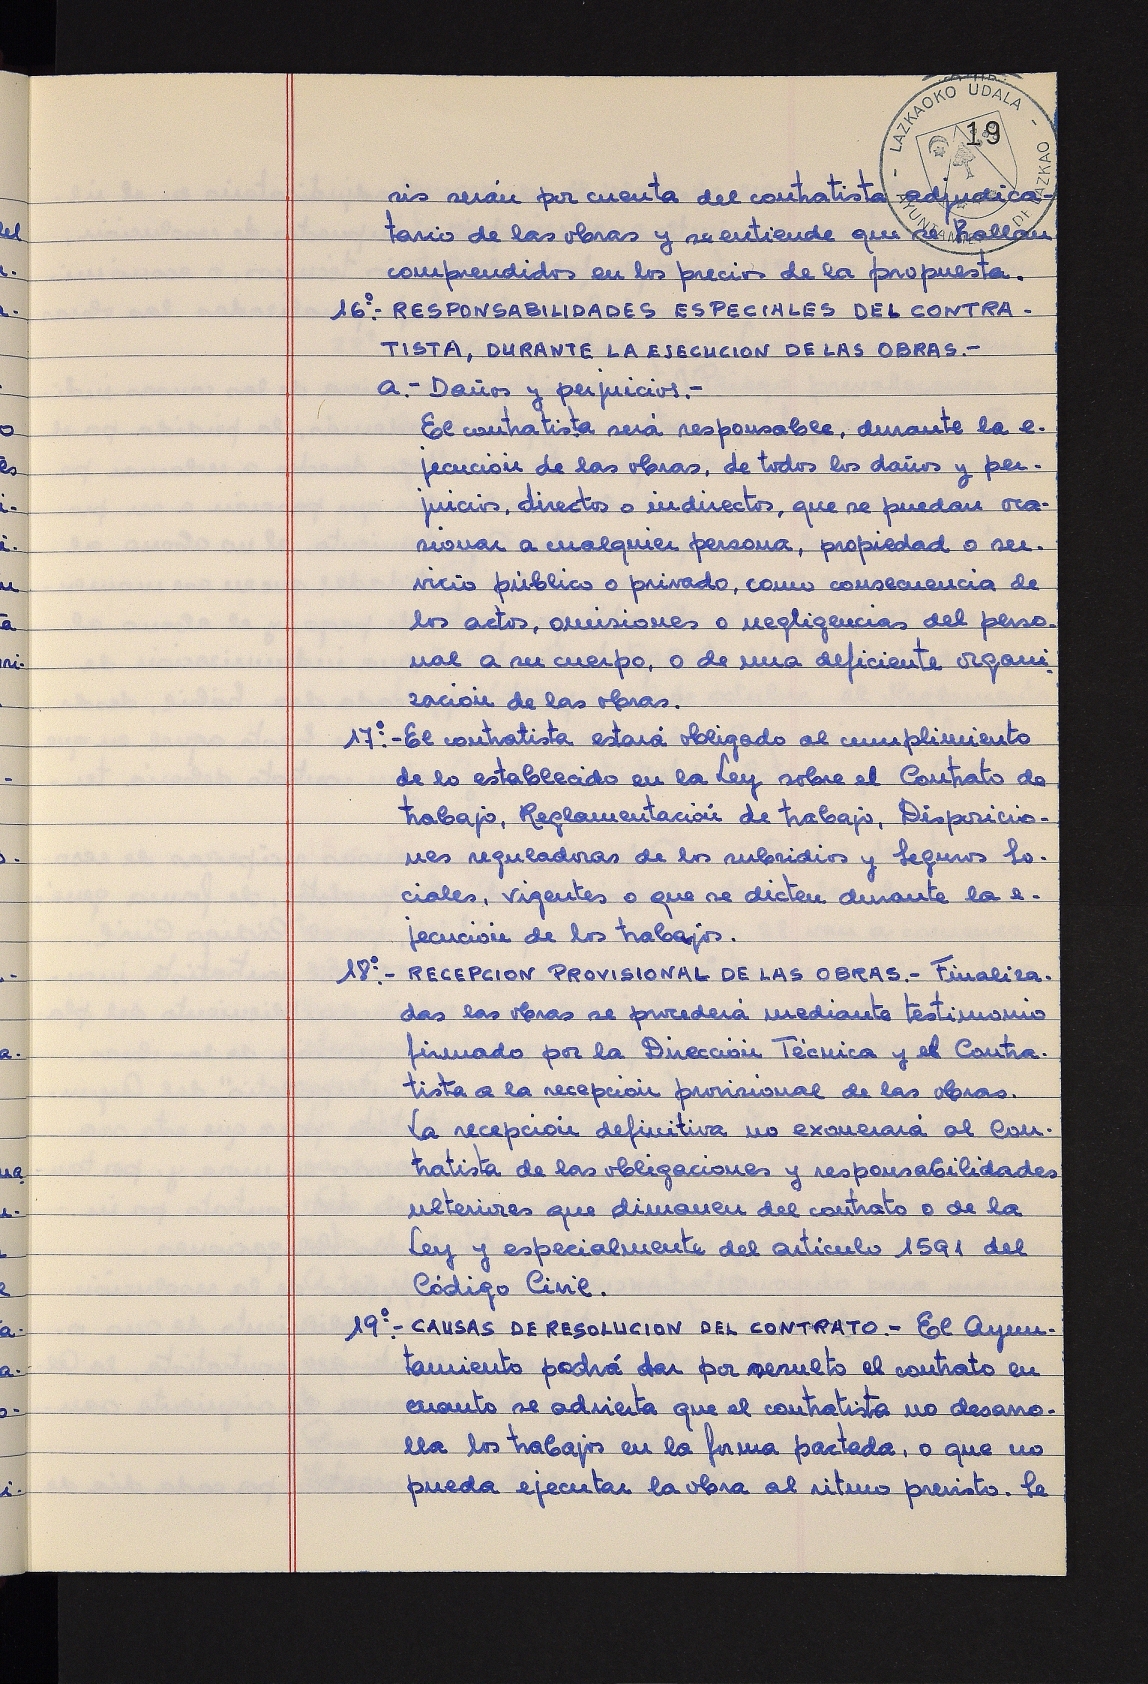 LAZKAOKO UDALA - AYUNTAMIENTO DE LAZKAO -
19
sis serán por cuenta del contratista adjudica-
tario de las obras y se entiende que se hallan
comprendidos en los precios de la propuesta.
16º.- RESPONSABILIDADES ESPECIALES DEL CONTRA-
TISTA, DURANTE LA EJECUCION DE LAS OBRAS.-
a.- Daños y perjuicios.-
El contratista será responsable, durante la e-
jecución de las obras, de todos los daños y per-
juicios, directos o indirectos, que se puedan oca-
sionar a cualquier persona, propiedad o ser-
vicio público o privado, como consecuencia de
los actos, omisiones o negligencias del perso-
nal a su cuerpo, o de una deficiente organi-
zación de las obras.
17º.- El contratista estará obligado al cumplimiento
de lo establecido en la Ley sobre el Contrato de
trabajo, Reglamentación de trabajo, Disposicio-
nes reguladoras de los subsidios y Seguros So-
ciales, vigentes o que se dicten durante la e-
jecución de los trabajos.
18º.- RECEPCION PROVISIONAL DE LAS OBRAS.- Finaliza-
das las obras se procederá mediante testimonio
firmado por la Dirección Técnica y el Contra-
tista a la recepción provisional de las obras.
La recepción definitiva no exonerará al Con-
tratista de las obligaciones y responsabilidades
ulteriores que dimanen del contrato o de la
Ley y especialmente del artículo 1591 del
Código Civil.
19º.- CAUSAS DE RESOLUCION DEL CONTRATO.- El Ayun-
tamiento podrá dar por resuelto el contrato en
cuanto se advierta que el contratista no desarro-
lla los trabajos en la forma pactada, o que no
pueda ejecutar la obra al ritmo previsto. Se